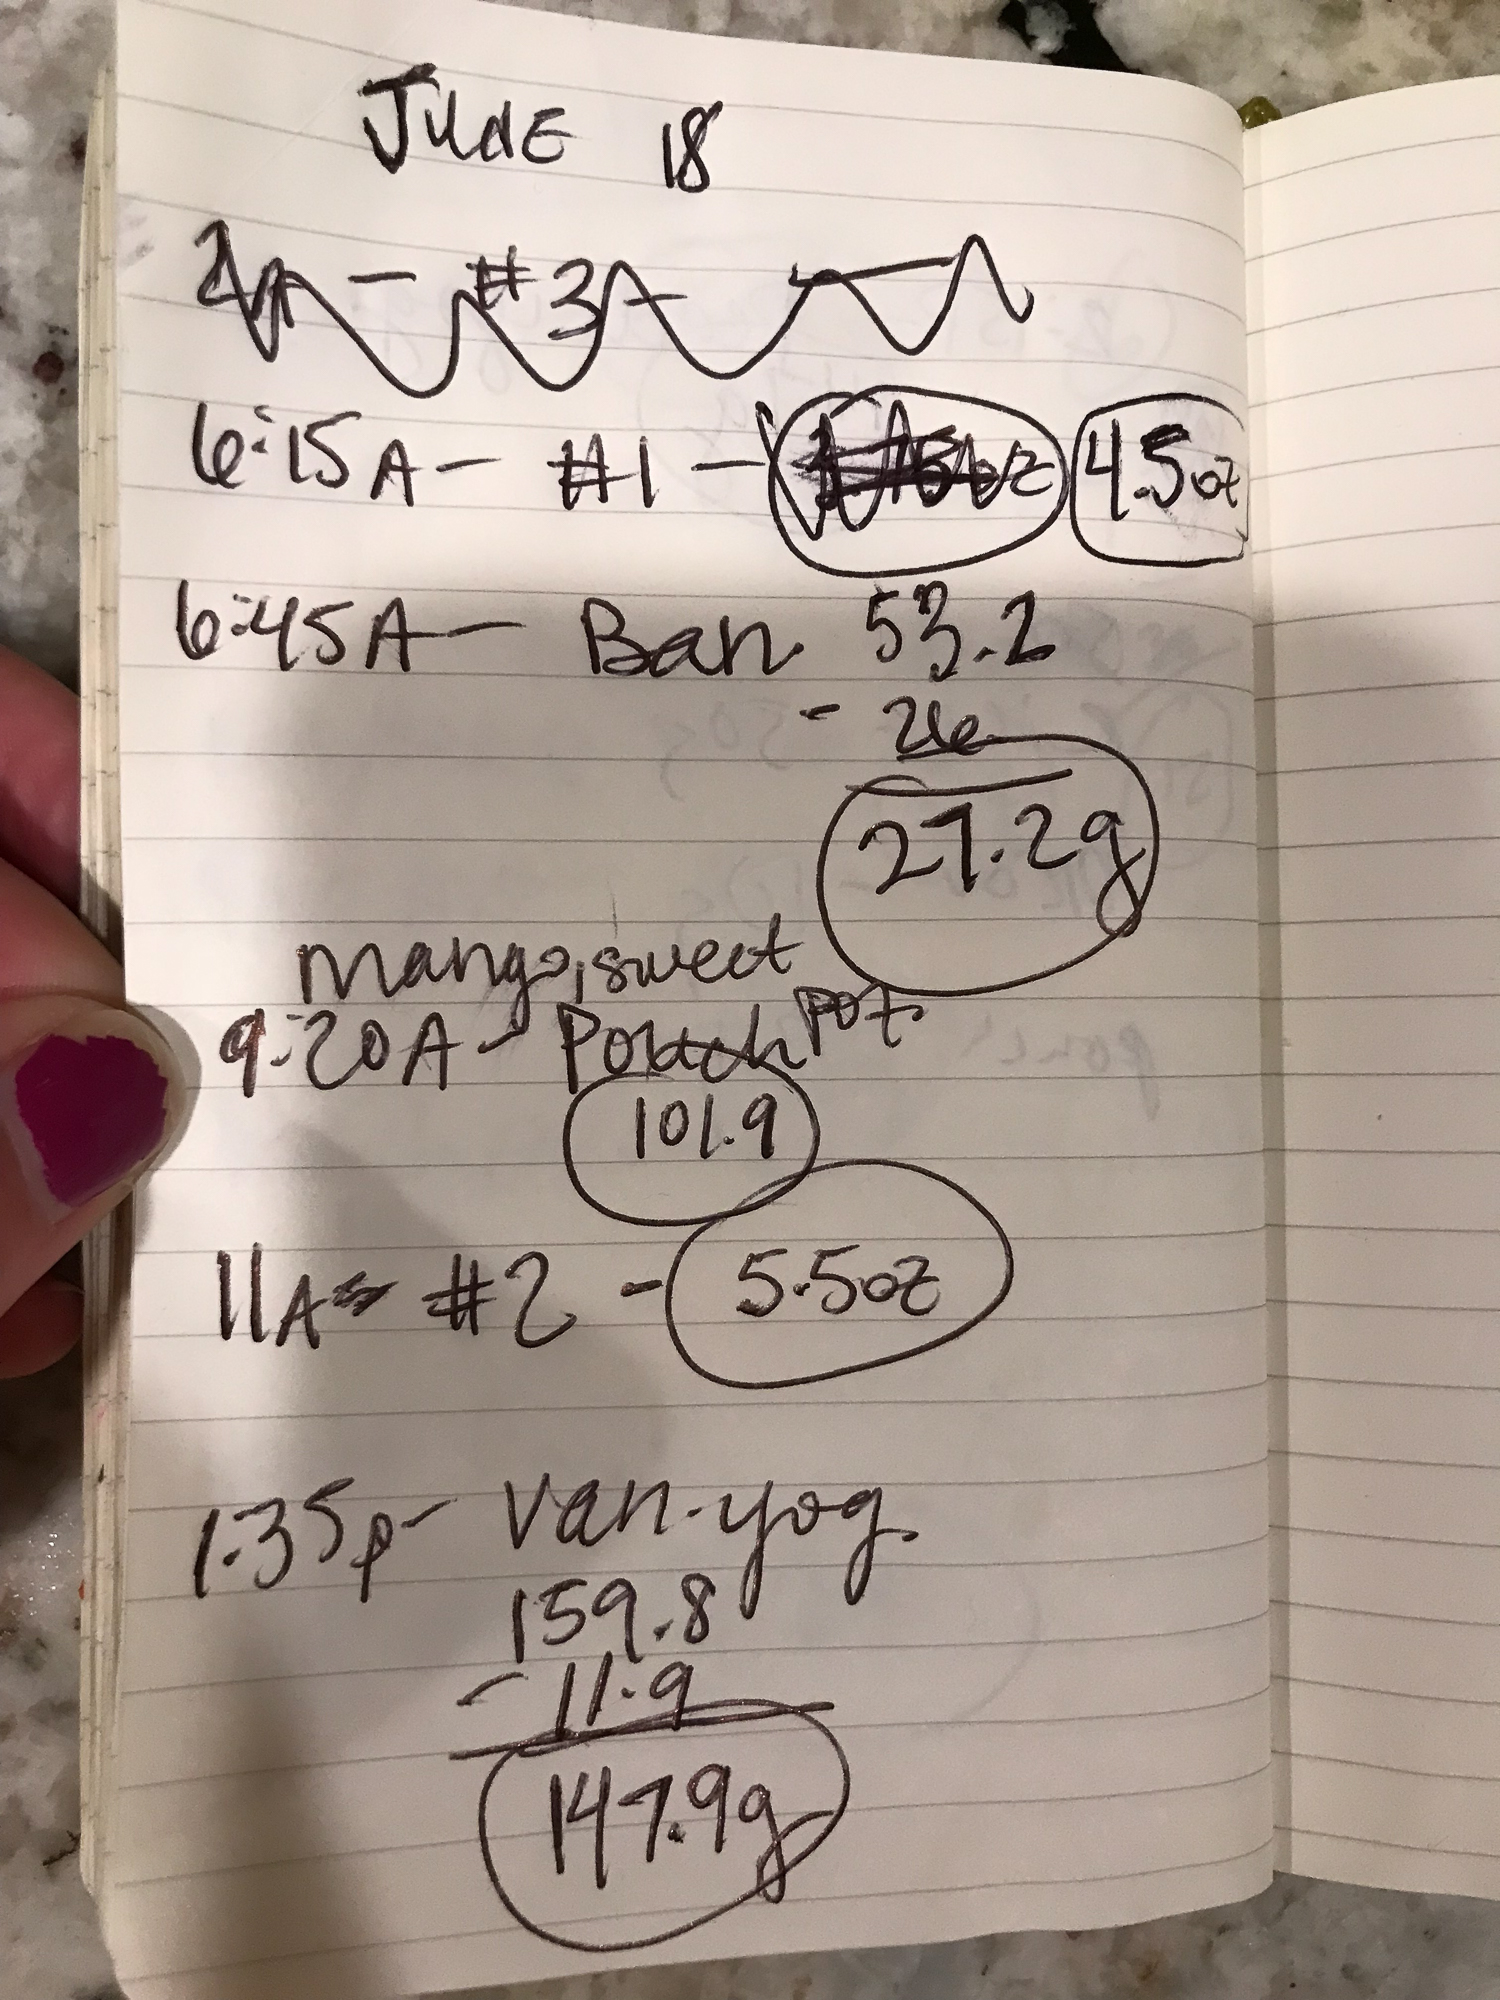 June 18
#3
6:15A - #1 - 4.5oz
6:45A - Ban. 53.2
- 26
27.2g
mango, sweet
9:20A - Pouch Pot.
101.9
11A - #2 - 5.5oz
1:35p - Van. yog.
159.8
- 11.9
147.9g